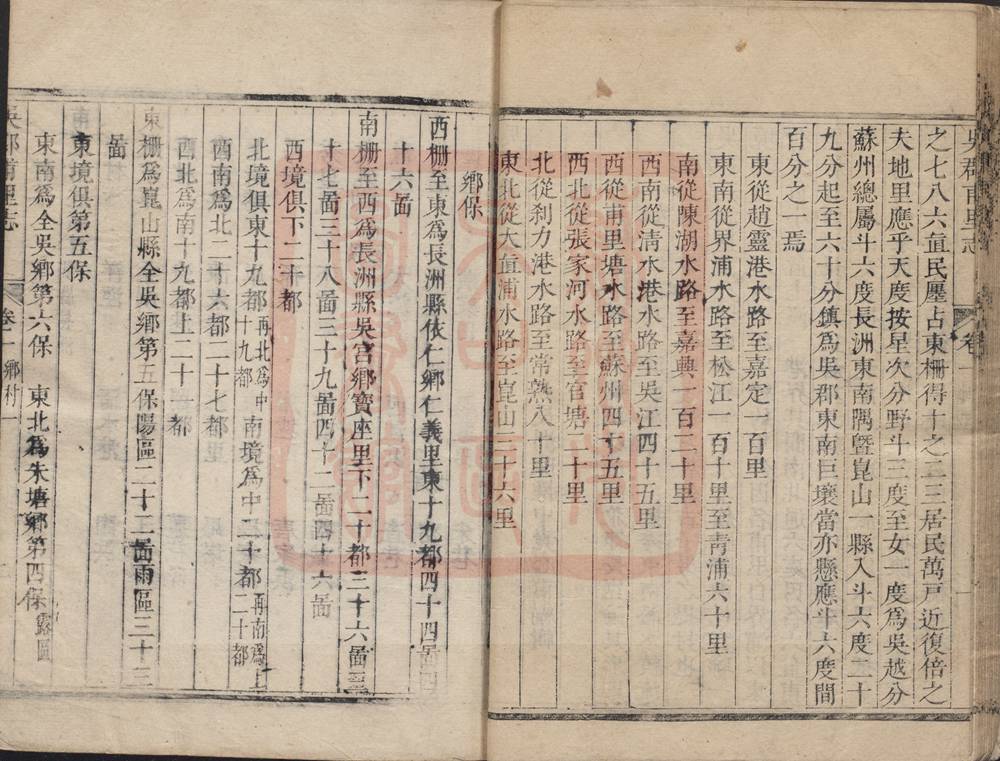 吳郡甫里志 卷一
之七八六直民廛占東柵得十之二三居民萬戸近復倍之
夫地里應乎天度按星次分野斗二度至女一度爲吳越分
蘇州總屬斗六度長洲東南隅曁崑山一縣入斗六度二十
九分起至六十分鎮爲吳郡東南巨壤當亦懸應斗六度間
百分之一焉
東從趙靈港水路至嘉定一百里
東南從界浦水路至松江一百十里至青浦六十里
南從陳湖水路至嘉興一百二十里
西南從淸水港水路至吳江四十五里
西從甫里塘水路至蘇州四十五里
西北從張家河水路至官塘二十里
北從刹力港水路至常熟八十里
東北從大直浦水路至崑山三十六里
鄉保
西柵至東爲長洲縣依仁鄉仁義里東十九都四十四啚四
十六啚
南柵至西爲長洲縣吳宮鄉寶座里下二十都三十六啚三
十七啚三十八啚三十九啚四十二啚四十六啚
西境俱下二十都
北境俱東十九都再北爲中十九都 南境爲中二十都再南爲上二十都
酉南爲北二十六都二十七都
酉北爲南十九都上二十一都
東柵爲崑山縣全吳鄉第五保陽區二十二啚雨區三十三
啚
東境俱第五保
東南爲全吳鄉第六保 東北爲朱塘鄉第四保露區
吳郡甫里志 卷一 鄉村 一